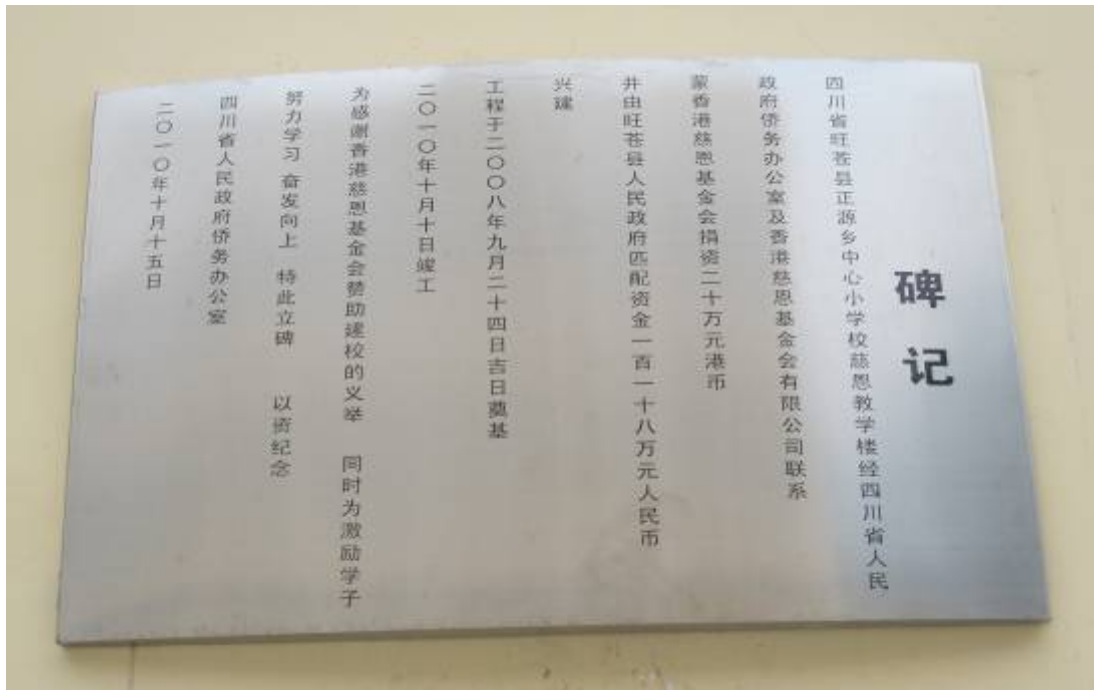 碑记
四川省旺苍县正源乡中心小学校慈恩教学楼经四川省人民
政府侨务办公室及香港慈恩基金会有限公司联系
蒙香港慈恩基金会捐资二十万元港币
并由旺苍县人民政府匹配资金一百一十八万元人民币
兴建
工程于二〇〇八年九月二十四日吉日奠基
二〇一〇年十月十日竣工
为感谢香港慈恩基金会赞助建校的义举 同时为激励学子
努力学习 奋发向上 特此立碑 以资纪念
四川省人民政府侨务办公室
二〇一〇年十月十五日